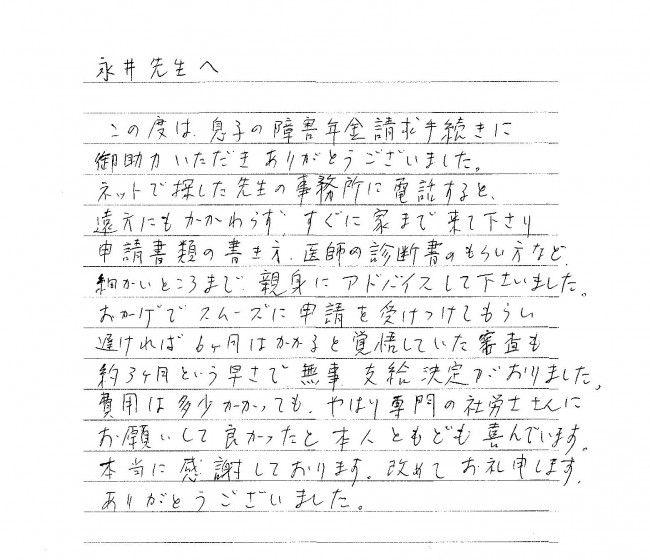 永井先生へ
この度は、息子の障害年金請求手続きに
御助力いただきありがとうございました。
ネットで探した先生の事務所に電話すると、
遠方にもかかわらず、すぐに家まで来て下さり
申請書類の書き方、医師の診断書のもらい方など、
細かいところまで、親身にアドバイスして下さいました。
おかげでスムーズに申請を受けつけてもらい
遅ければ6ヶ月はかかると覚悟していた審査も
約3ヶ月という早さで無事支給決定がおりました。
費用は多少かかっても、やはり専門の社労士さんに
お願いして良かったと本人ともども喜んでいます。
本当に感謝しております。改めてお礼申します。
ありがとうございました。